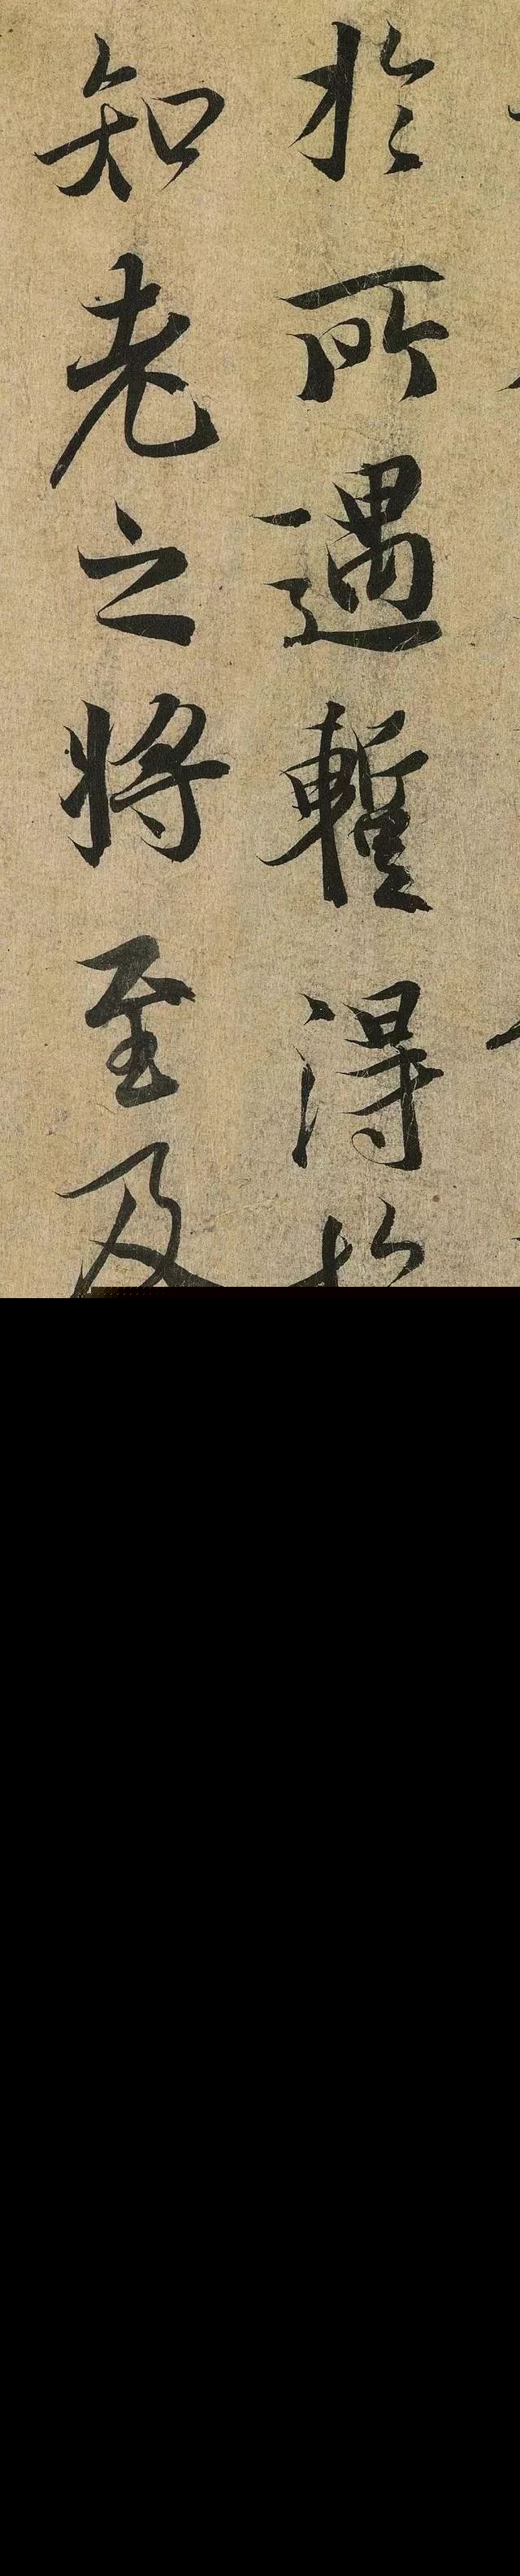 於所遇暫得於
知老之將至及